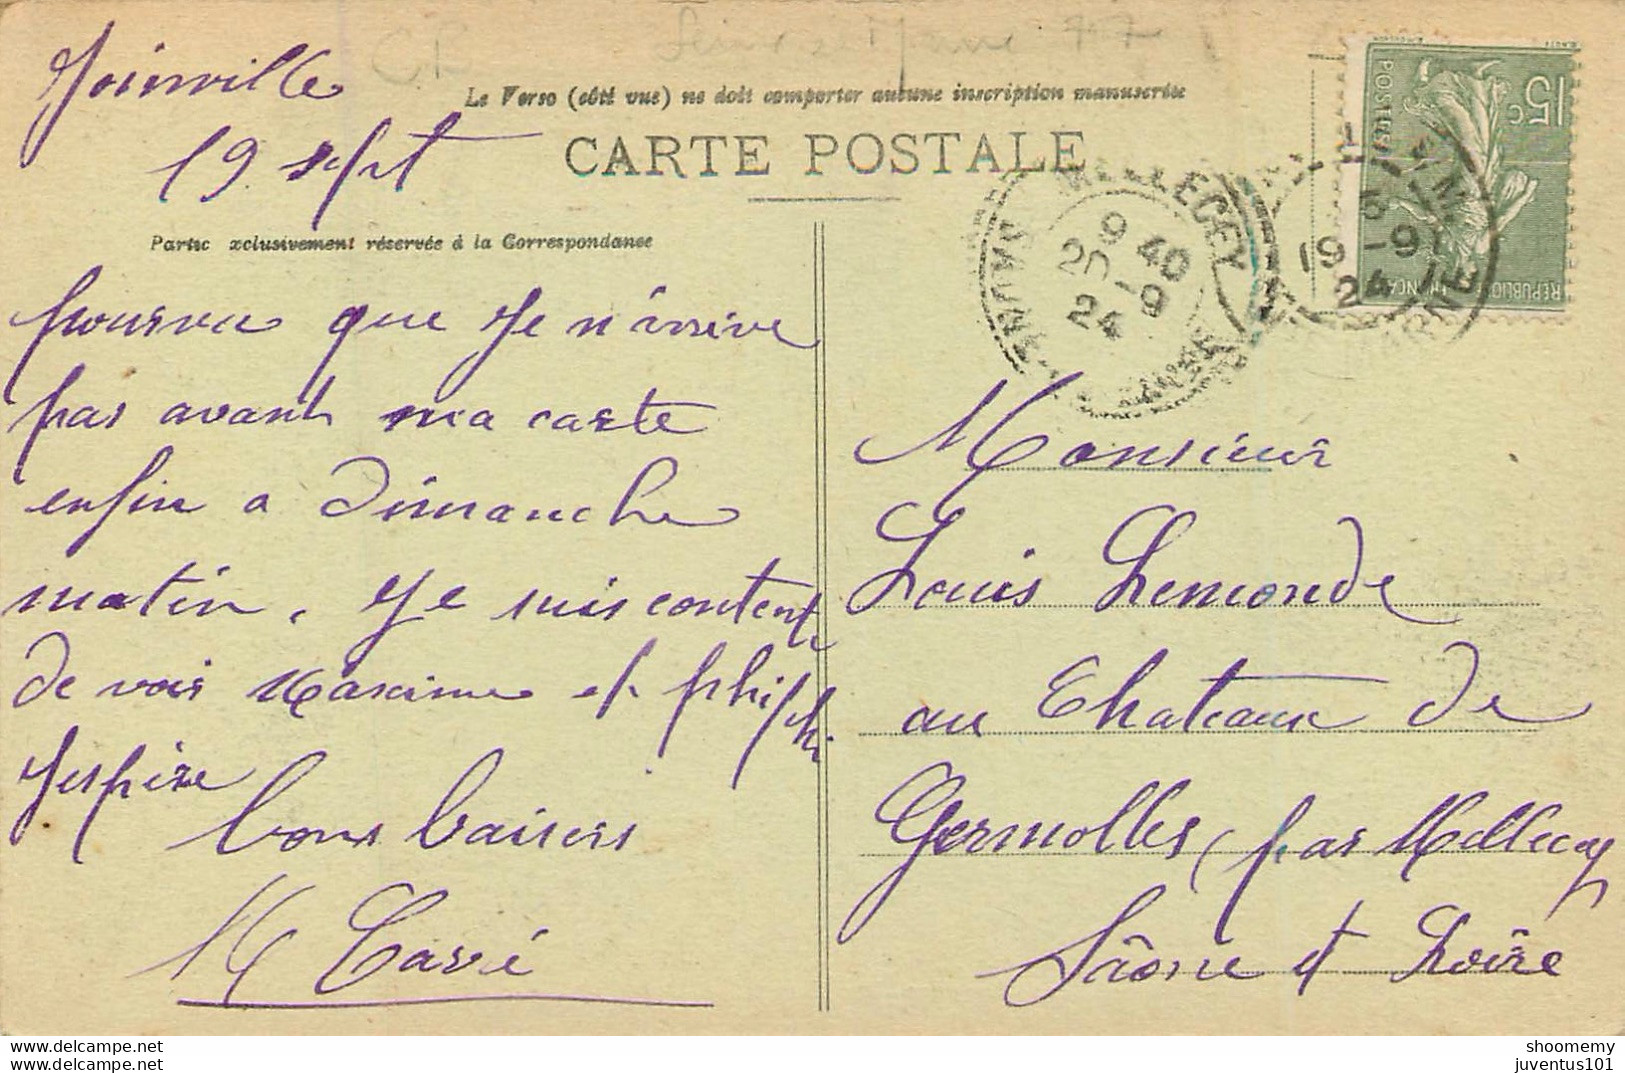 Joinville
19 sept
Le Verso (côté vue) ne doit comporter aucune inscription manuscrite
CARTE POSTALE
Partie exclusivement réservée à la Correspondance
pourvu que Je n'arrive
pas avant ma carte
enfin a Dimanche
matin, Je suis contente
de voir Maxime et
Jespère
bons baisers
M Carré
15c
POSTES
RÉPUBLIQUE FRANÇAISE
MELLECEY
9 40
20 -9
24
SAONE
19 -9
24
MARNE
Monsieur
Louis Lemonde
au Chateaux de
Germolles, par Mellecey
Sâone et Loire
www.delcampe.net
www.delcampe.net
shoomemy
juventus101